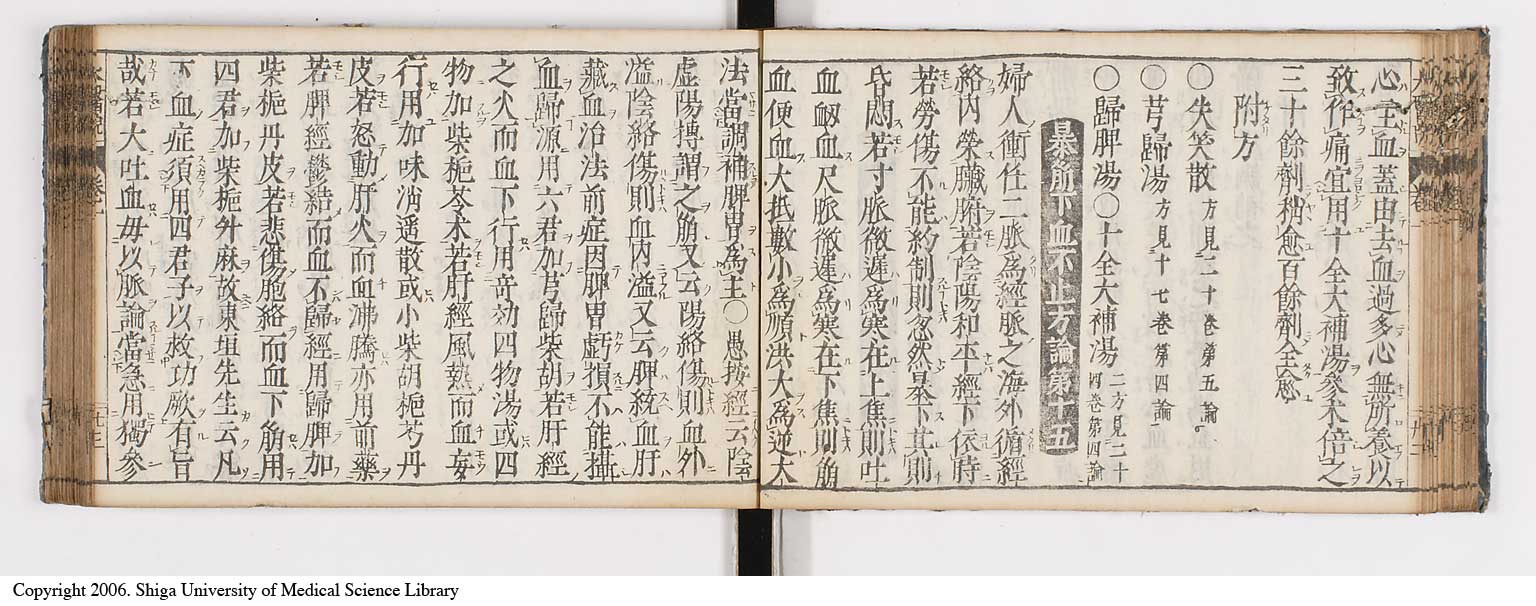 心主血蓋由去血過多心無所養以
致作痛宜用十全大補湯參朮倍之
三十餘劑稍愈百餘劑全愈
附方
○失笑散 方見二十卷第五論
○芎歸湯 方見十七卷第四論
○歸脾湯○十全大補湯 二方見三十四卷第四論
暴崩下血不止方論第十五
婦人衝任二脈爲經脈之海外循經
絡內榮臟腑若陰陽和平經下依時
若勞傷不能約制則忽然暴下甚則
昏悶若寸脈微遲爲寒在上焦則吐
血衂血尺脈微遲爲寒在下焦則崩
血便血大抵數小爲順洪大爲逆大
法當調補脾胃爲主○愚按經云陰
虛陽搏謂之崩又云陽絡傷則血外
溢陰絡傷則血內溢又云脾統血肝
藏血治法前症因脾胃虧損不能攝
血歸源用六君加芎歸柴胡若肝經
之火而血下行用奇効四物湯或四
物加柴梔芩朮若肝經風熱而血妄
行用加味消遥散或小柴胡梔芍丹
皮若怒動肝火而血沸騰亦用前藥
若脾經鬱結而血不歸經用歸脾加
柴梔丹皮若悲傷胞絡而血下崩用
四君加柴梔升麻故東垣先生云凡
下血症須用四君子以救功厥有旨
哉若大吐血毋以脈論當急用獨參
Copyright 2006. Shiga University of Medical Science Library